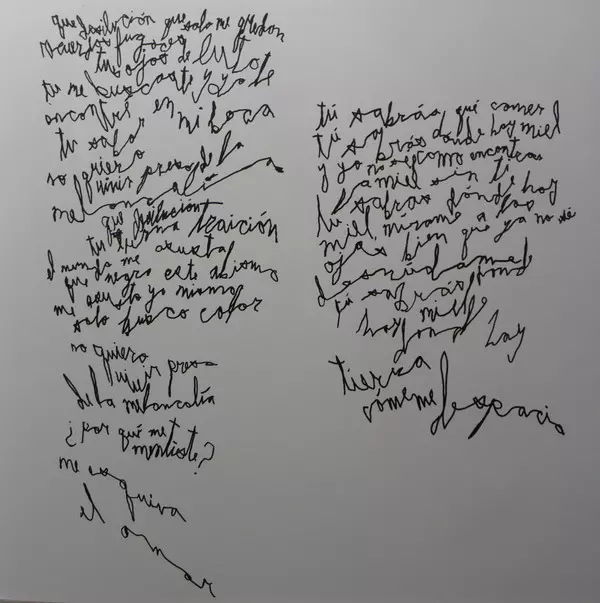 que desilución que solo me quedan
recuerdos fugaces
tus ojos de luto
tú me buscaste y yo te
encontré en mi boca
tu sabor
no quiero
vivir presa de la
melancolía
que desilución
tu tierna traición
el mundo me asusta
que negro este abismo
me asusto yo mismo
solo busco color
no quiero
vivir presa
de la melancolía
¿por qué me
mentiste?
me esquiva
el amar
tú sabrás qué comer
tú sabrás dónde hay miel
y yo no sé como encontrar
la miel sin ti
tú sabras dónde hay
miel mírame a los
ojos bien que ya no sé
desnúdame
tú sabrás
hay miel
hay
tierra
cómeme despacio